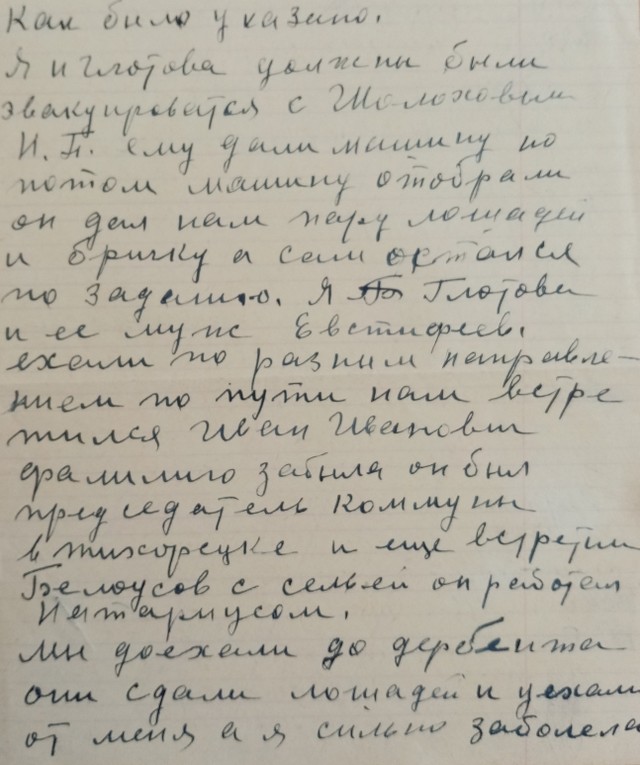 Как было указано.
Я и Глотова должны были
эвакуироватся с Шолоховым
И.П. ему дали машину но
потом машину отобрали
он дал нам пару лошадей
и бричку а сам остался
по заданию. Я Глотова
и ее муж Евстифеев.
ехали по разним направле-
нием по пути нам встре
тился Иван Иванович
фамилию забыла он был
председатель Коммуны
в тихорецке и еще встретили
Белоусов с семьей он работал
Натариусом.
мы доехали до дербента
они сдали лошадей и уехали
от меня а я сильно заболела